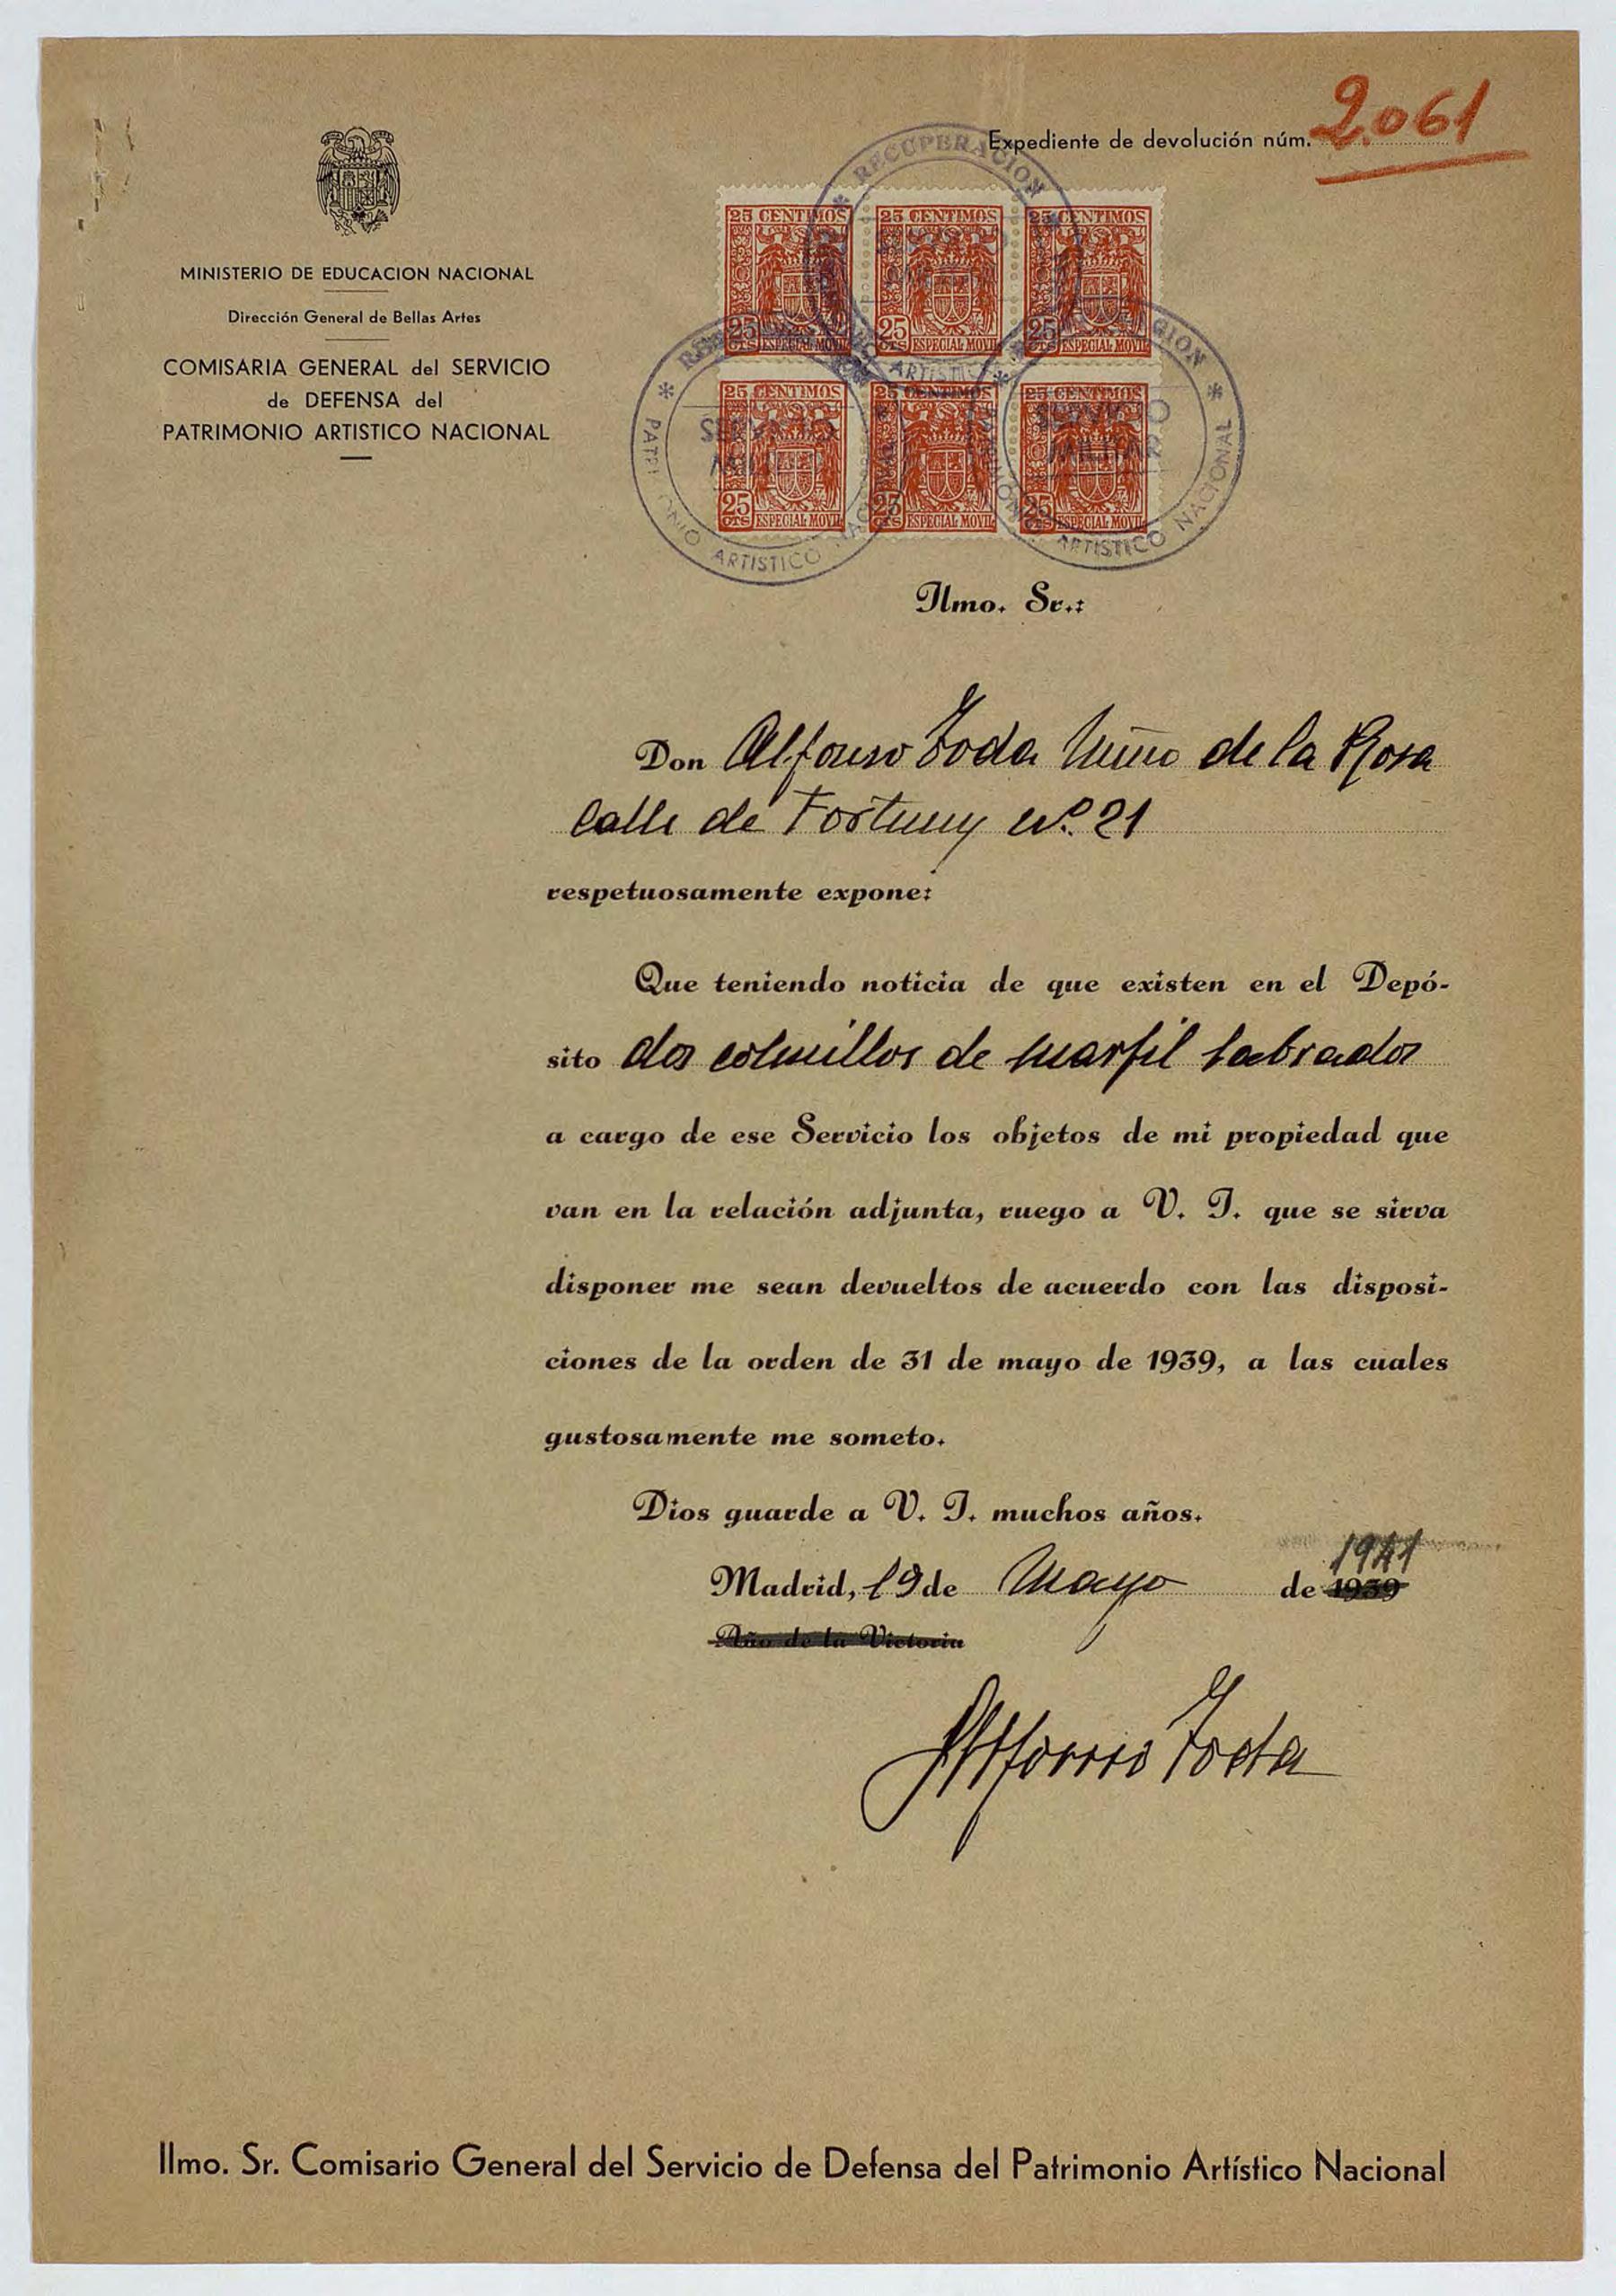 Expediente de devolución núm. 2.061
MINISTERIO DE EDUCACION NACIONAL
Dirección General de Bellas Artes
COMISARIA GENERAL del SERVICIO
de DEFENSA del
PATRIMONIO ARTISTICO NACIONAL
RECUPERACION
25 CENTIMOS 25 CENTIMOS 25 CENTIMOS
25 CTS ESPECIAL MOVIL 25 CTS ESPECIAL MOVIL 25 CTS ESPECIAL MOVIL
25 CENTIMOS 25 CENTIMOS 25 CENTIMOS
25 CTS ESPECIAL MOVIL 25 CTS ESPECIAL MOVIL 25 CTS ESPECIAL MOVIL
SERVICIO
MILITAR
PATRIMONIO ARTISTICO NACIONAL
Ilmo. Sr.:
Don Alfonso Toda Nuño de la Rosa
Calle de Fortuny nº 21
respetuosamente expone:
Que teniendo noticia de que existen en el Depó-
sito dos colmillos de marfil labrados
a cargo de ese Servicio los objetos de mi propiedad que
van en la relación adjunta, ruego a V. I. que se sirva
disponer me sean devueltos de acuerdo con las disposi-
ciones de la orden de 31 de mayo de 1939, a las cuales
gustosamente me someto.
Dios guarde a V. I. muchos años.
1941
Madrid, 19 de Mayo de 1939
Año de la Victoria
Alfonso Toda
Ilmo. Sr. Comisario General del Servicio de Defensa del Patrimonio Artístico Nacional